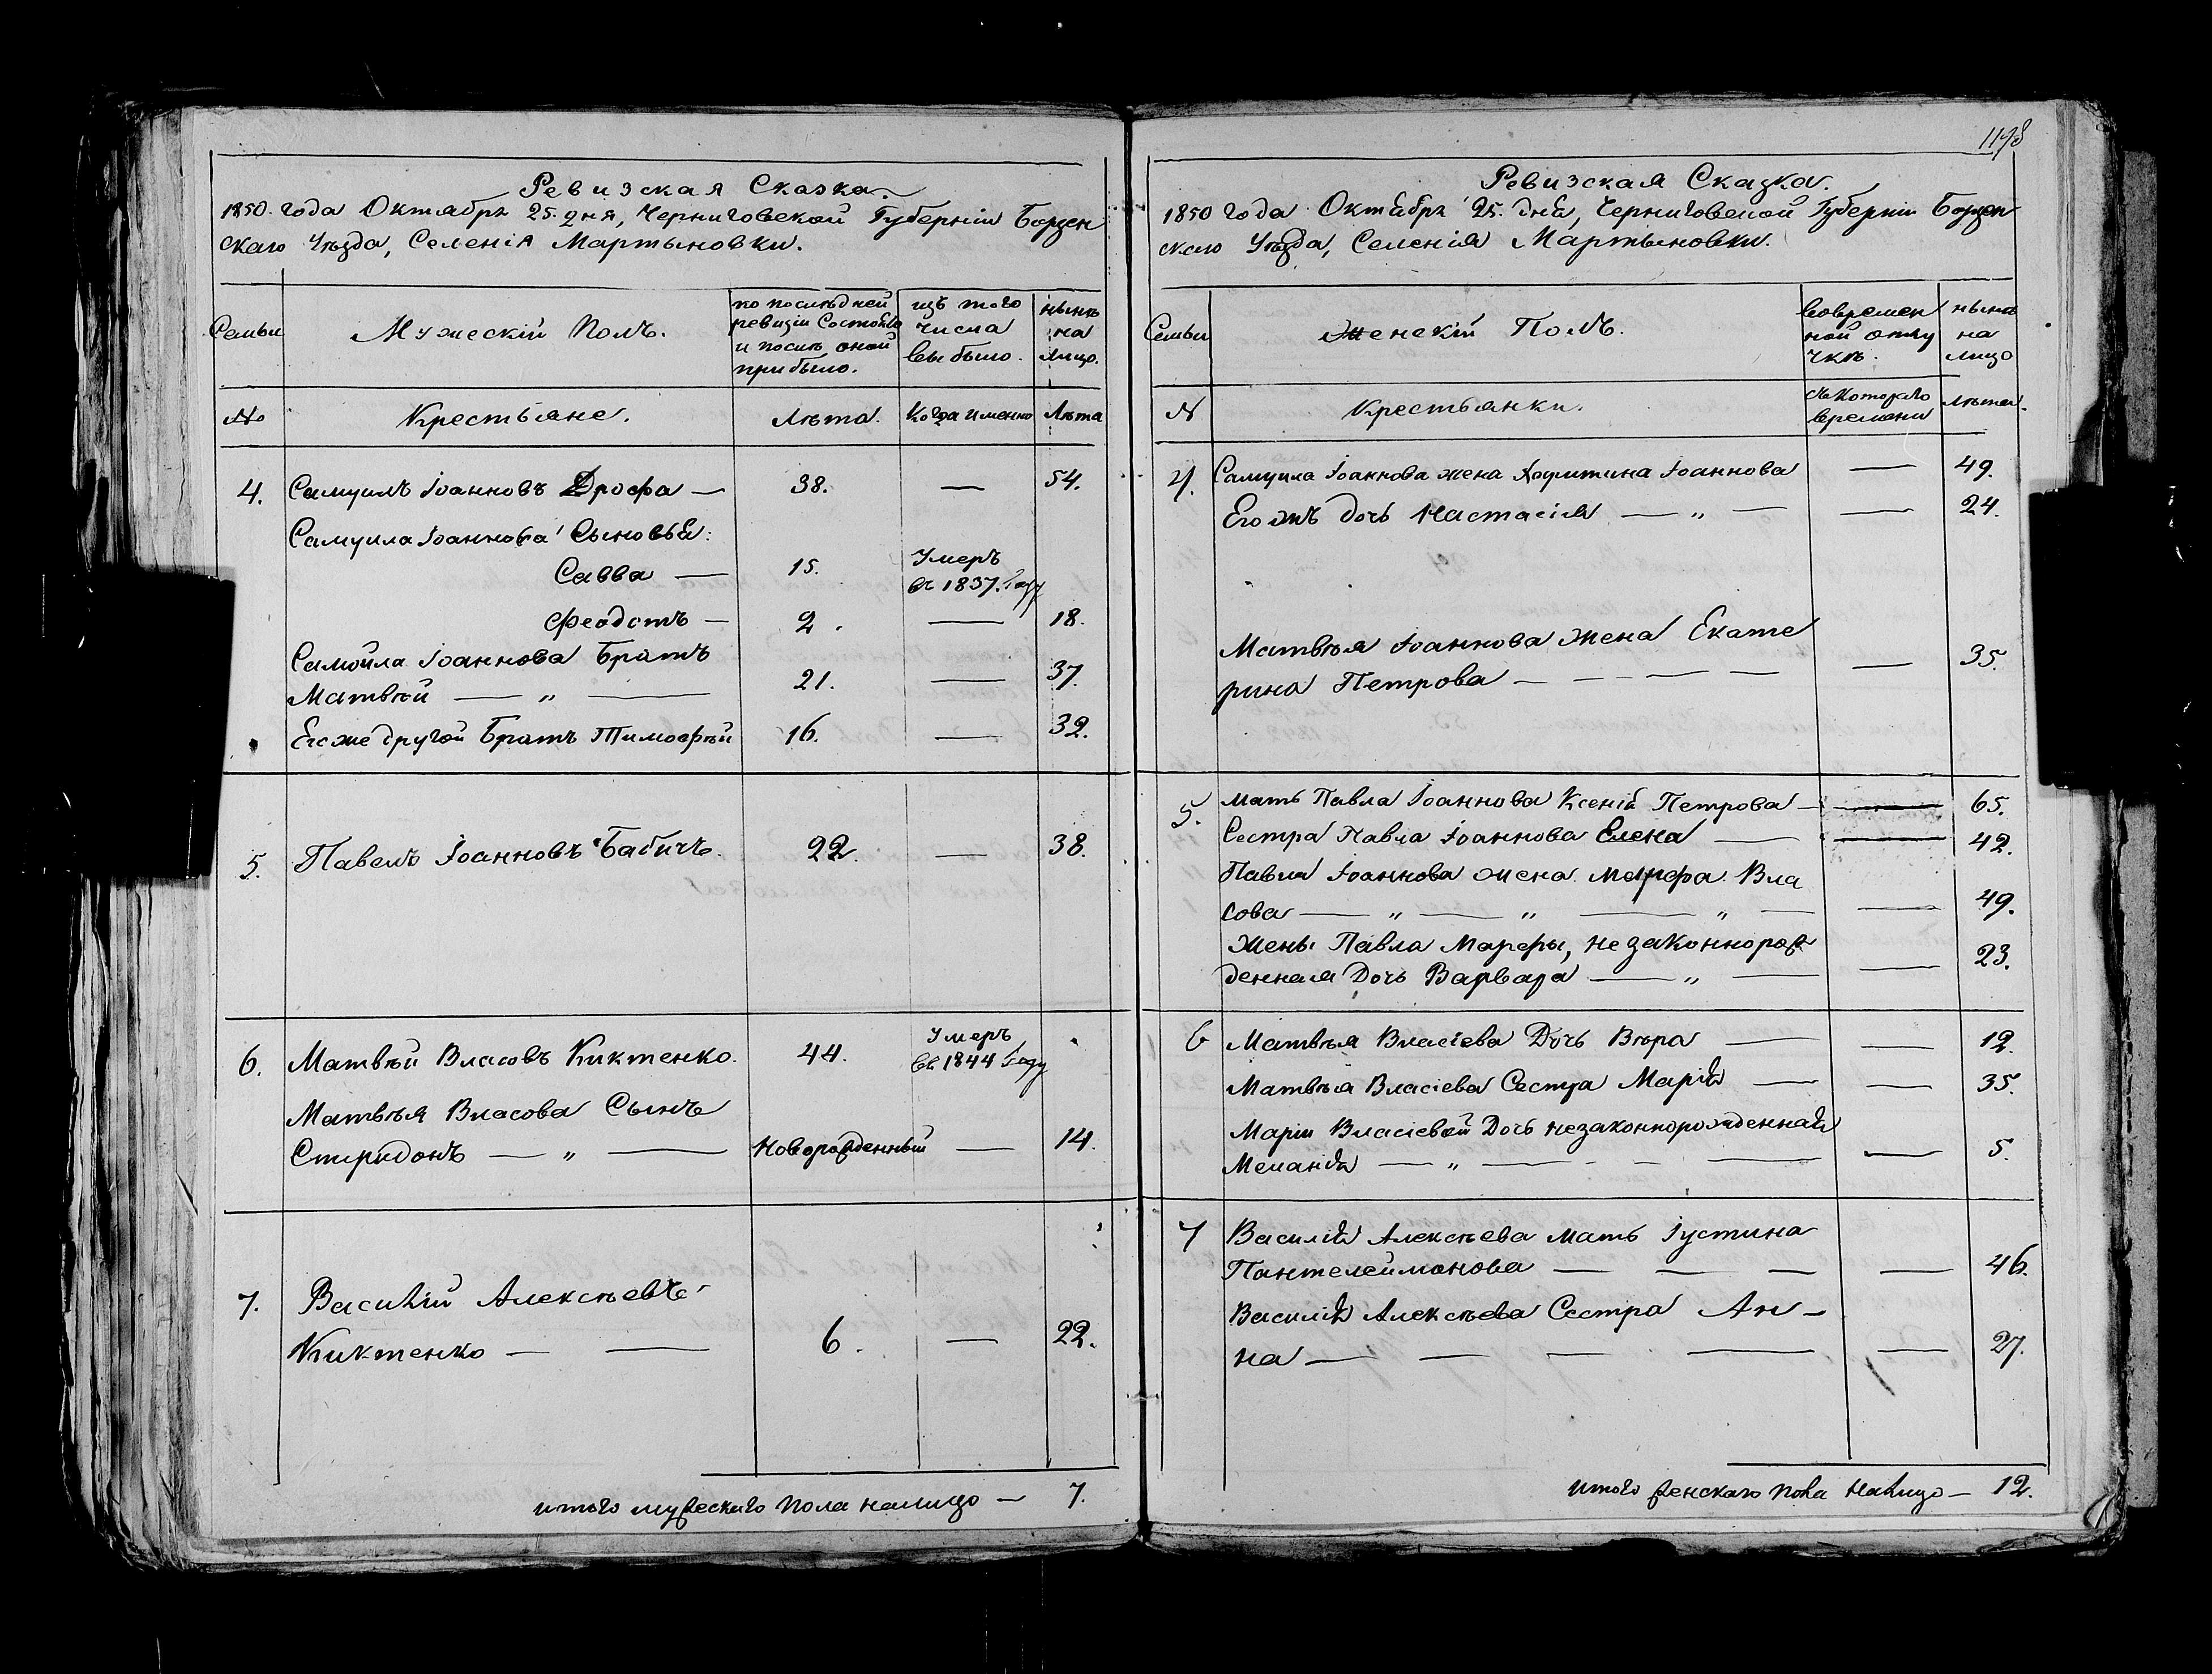 Ревизская Сказка.
1850. года Октября 25. дня, Черниговской Губерніи Борзен
скаго Уѣзда, Селенія Мартыновки.
Семьи
Мужескій Полъ.
по послѣдней
ревизіи Состояло
и послѣ оной
прибыло.
изъ того
числа
выбыло.
нынѣ
на
лицо.
№
Крестьяне.
Лѣта.
Когда именно
Лѣта
4. Самуилъ Іоанновъ Дрофа — 38. — 54.
Самуила Іоаннова Сыновья:
Савва — 15. Умеръ
въ 1837. Году
Феодотъ — 2. — 18.
Самойла Іоаннова Братъ
Матвѣй — „ — 21. — 37.
Егоже другой Братъ Тимофѣй 16. — 32.
5. Павелъ Іоанновъ Бабичъ. 22. — 38.
6. Матвѣй Власовъ Киктенко. 44. Умеръ
въ 1844 Году
Матвѣя Власова Сынъ
Спиридонъ — „ — Новорожденный — 14.
7. Василій Алексѣевъ
Киктенко — — 6. — 22.
итого мужескаго пола налицо — 7.
1178
Ревизская Сказка.
1850 года Октября 25. дня, Черниговской Губерніи Борзен
скаго Уѣзда, Селенія Мартыновки.
Семьи
Женскій Полъ.
вовремен
ной отлу
чкѣ.
нынѣ
на
лицо
№
Крестьянки.
съкотораго
времени
лѣта.
4. Самуила Іоаннова жена Харитина Іоаннова — 49.
Его жъ дочь Настасія — „ — — 24.
Матвѣя Іоаннова жена Екате
рина Петрова — — — — — 35.
5. мать Павла Іоаннова Ксенія Петрова — — 65.
Сестра Павла Іоаннова Елена — — 42.
Павла Іоаннова жена Марфа Вла
сова — „ — „ — „ — — 49.
жены Павла Марфы, незаконнорож
денная Дочь Варвара — „ — — 23.
6 Матвѣя Власіева Дочь Вѣра — — 12.
Матвѣя Власіева Сестра Марія — — 35.
Маріи Власіевой Дочь незаконнорожденная
Меланія — „ — - — — — 5.
7 Василія Алексѣева мать Іустина
Пантелеймонова — — — — 46.
Василія Алексѣева Сестра Ан-
на — — — — — 27.
итого женскаго пола налицо — 12.